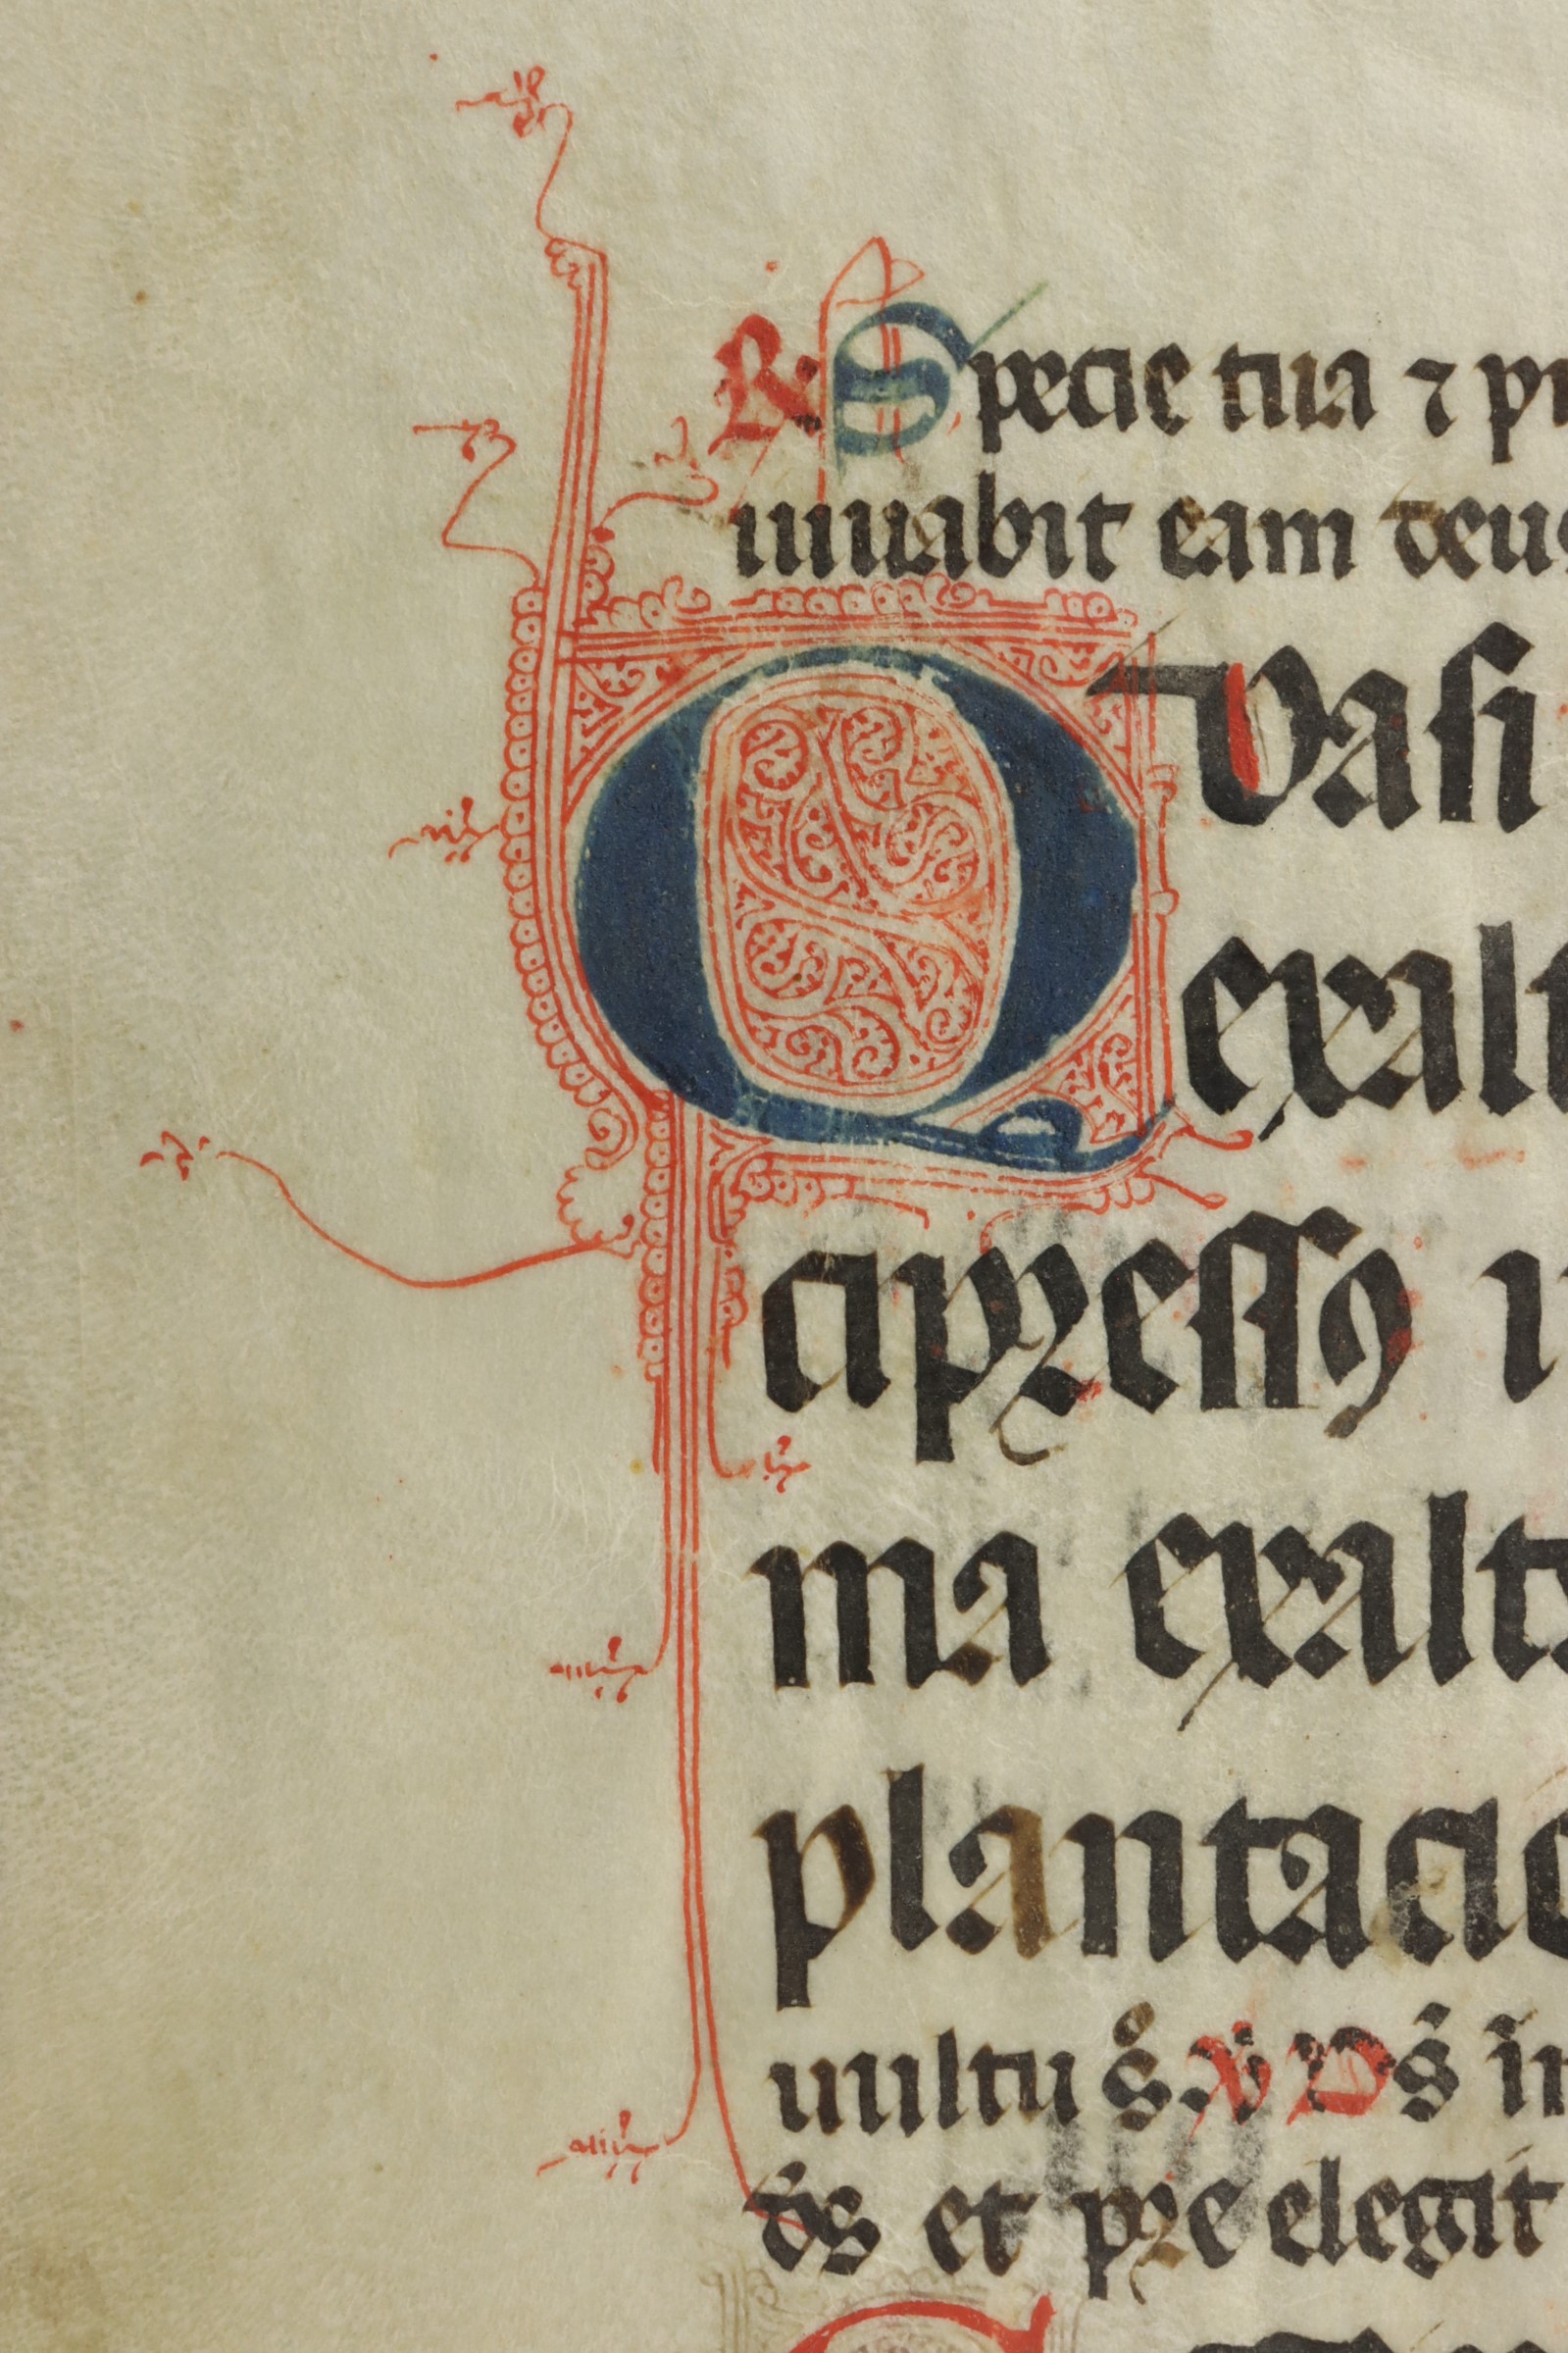 ℟ Specie tua ⁊ pu
iuuabit eam deus
QVasi
exalt
cipressꝯ i
ma exalta
plantacio
uultu sͦ. ℣ Ds̄ in
ds̄ et pre elegit